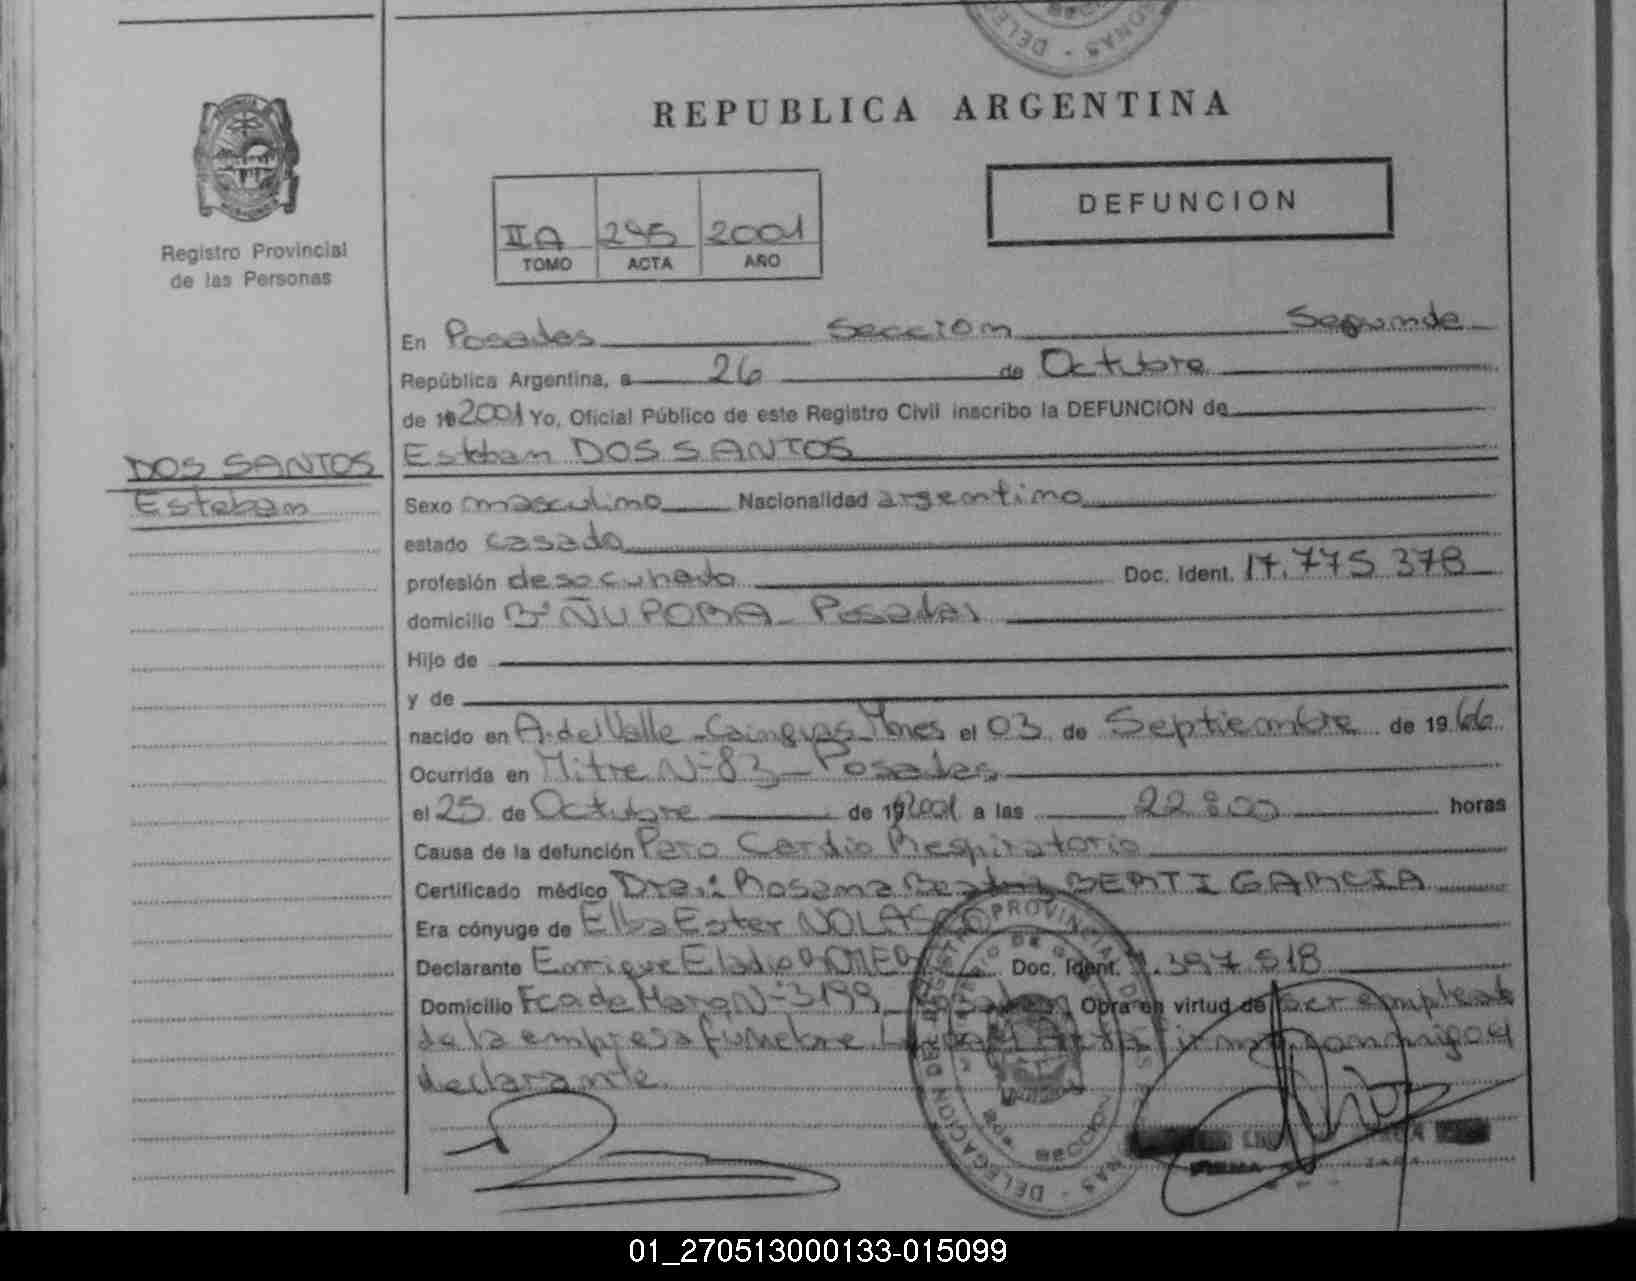 REPUBLICA ARGENTINA
DEFUNCION
IIA 295 2001
TOMO ACTA AÑO
Registro Provincial
de las Personas
En Posadas Sección Segunda
República Argentina, a 26 de Octubre
de 19 2001 Yo, Oficial Público de este Registro Civil inscribo la DEFUNCION de
DOS SANTOS
Esteban
Esteban DOS SANTOS
Sexo masculino Nacionalidad argentino
estado casado
profesión desocupado Doc. Ident. 17.775.378
domicilio B° ÑU PORA - Posadas
Hijo de
y de
nacido en A. del Valle - Cainguas Mnes el 03 de Septiembre de 1966
Ocurrida en Mitre N° 83 - Posadas
el 25 de Octubre de 19 2001 a las 22:00 horas
Causa de la defunción Paro Cardio Respiratorio
Certificado médico Dra.: Rosana BERTI GARCIA
Era cónyuge de Elba Ester NOLASCO
Declarante Enrique Eladio Doc. Ident. .397.518
Domicilio Fca de Haro N° 3199 Obra en virtud de ser emplead
de la empresa fúnebre firma conmigo el
declarante
PROVINCIAL
DELEGACION
SECCION
01_270513000133-015099